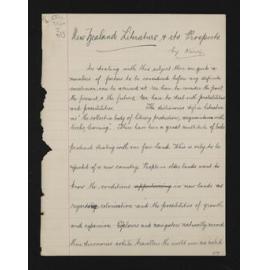 New Zealand Literature & its Prospects
by
In dealing with this subject there are such a
number of factors to be considered before any definite
conclusion can be arrived at. We have to consider the past
the present & the future. We have to deal with probabilities
and possibilities. The dictionaries define literature
as "the collective body of literary productions,
books; learning". There have been a great multitude of books
produced dealing with our fair land. This is only to be
expected of a new country. People in older lands want to
know the conditions in new lands as
regards colonisation and the possibilities of growth
and expansion. Explorers and navigators naturally record
their discoveries while travellers the world over are